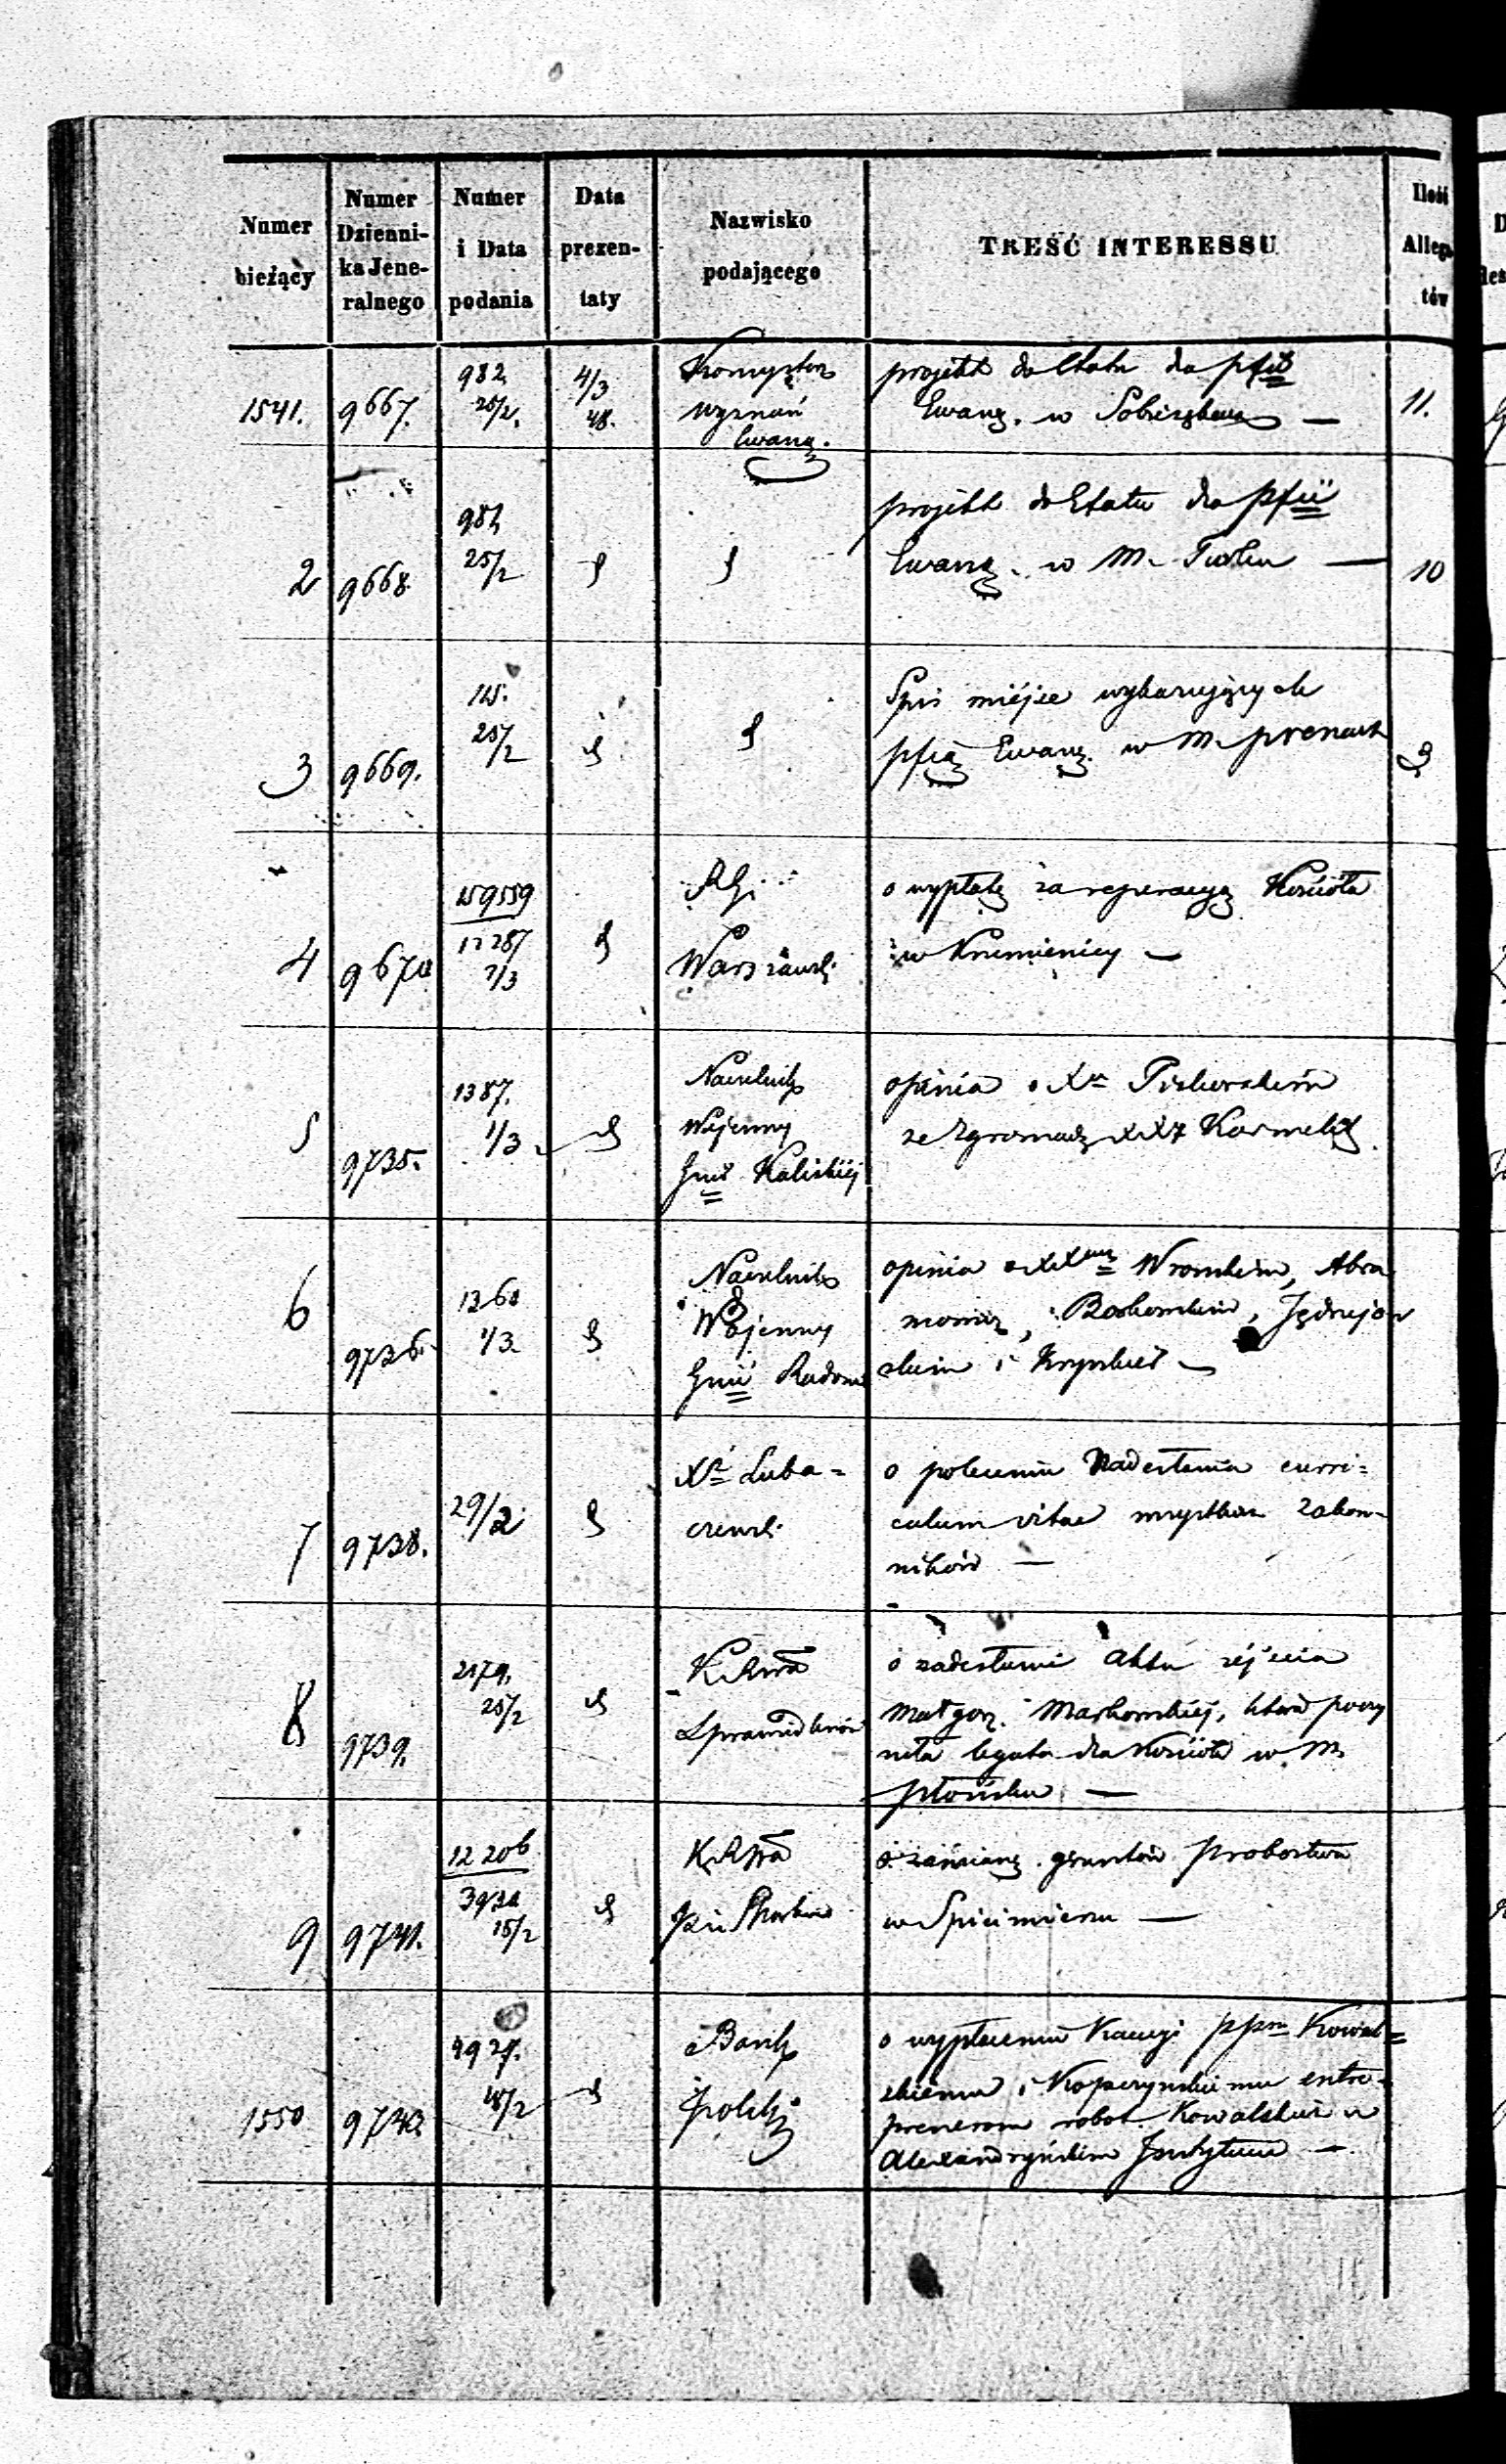 Numer bieżący
Numer Dzienni-
ka Jene-
ralnego
Numer i Data podania
Data prezen-
taty
Nazwisko podającego
TREŚĆ INTERESSU
Ilość
1541. 9667. 982 25/2. 4/3 48. wyznań Ewang. projekt do Etatu dla pfii
Ewang. w 11.
2 9668 25/2 projekt do Etatu dla pfii
Ewang. w M. 10
3 9669. 115. 25/2 Spis miejsc wykazujących
pfią Ewang. w M. prenach
4 9670 159559 12287 1/3 RG. Warszawsk. o wypłatę za reperacyą Kościoła
w Krzemienicy —
5 9735. 1387. 1/3 Naczelnik
Wojenny
Gnii Kaliskiej
opinia o Xu
ze Zgromadz XXX Karmelit
6 9736. 1360 1/3 Naczelnik
Wojenny
Gnii Radoms
opinia o XX Wronskim, Abra
mowicz, Jędrzejow
skim i
7 9738. 29/2 Xdz Luba=
czewsk.
o poleceniu Nadesłania curri=
culum vitae wszystkich Zakon-
ników —
8 9739. 2179. 25/2 KRwa
Sprawiedliwości
o nadesłanie Aktu zejścia
Małgorz. Markowskiej, która poczy
niła legata dla Kościoła w M.
Płońsku —
9 9741. 12206 15/2 KRwa
Pzii Skarbu
o zamianę gruntów probostwa
w Spicimierzu —
1550 4927. 18/2 Bank
Polski
o wypłaceniu Kaucyi ppm Kowal=
skiemu i Kopczyńskiemu entre-
prenerom robot Kowalskich w
Alexandryńskim Instytucie —